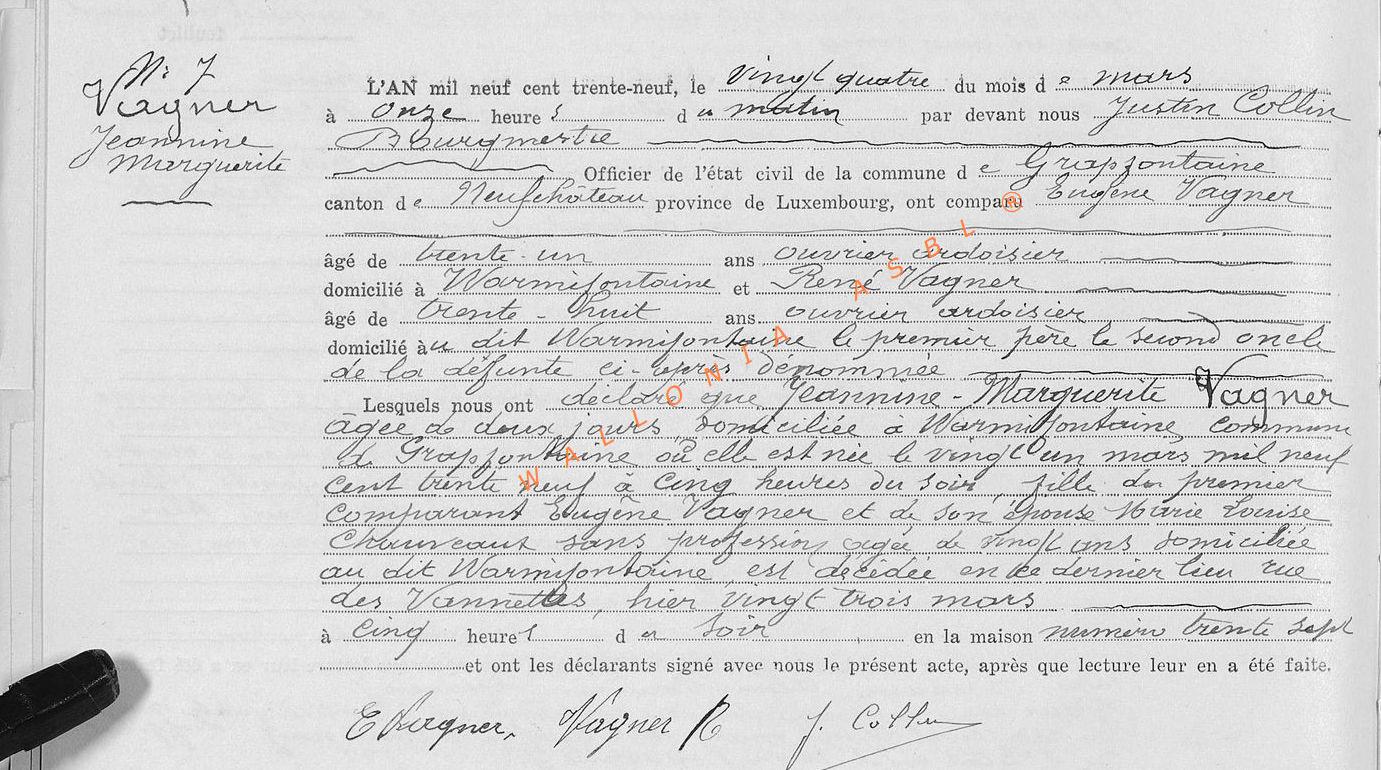 N° 7
Vagner
Jeannine
Marguerite
L'AN mil neuf cent trente-neuf, le vingt quatre du mois de mars
à onze heures du matin par devant nous Justin Collin
Bourgmestre
Officier de l'état civil de la commune de Grapfontaine
canton de Neufchâteau province de Luxembourg, ont comparu Eugène Vagner
âgé de trente-un ans ouvrier ardoisier
domicilié à Warmifontaine et René Vagner
âgé de trente-huit ans ouvrier ardoisier
domicilié au dit Warmifontaine le premier père le second oncle
de la défunte ci-après dénommée
Lesquels nous ont déclaré que Jeannine-Marguerite Vagner
âgée de deux jours, domiciliée à Warmifontaine, commune
de Grapfontaine où elle est née le vingt un mars mil neuf
cent trente neuf à cinq heures du soir fille du premier
comparant Eugène Vagner et de son épouse Marie Louise
Chauveaut sans profession agée de vingt ans domiciliée
au dit Warmifontaine, est décédée en ce dernier lieu rue
des Vannettes, hier vingt trois mars
à cinq heures du soir en la maison numéro trente sept
et ont les déclarants signé avec nous le présent acte, après que lecture leur en a été faite.
E Vagner, Vagner R J. Collin
WALLONIA ASBL ®